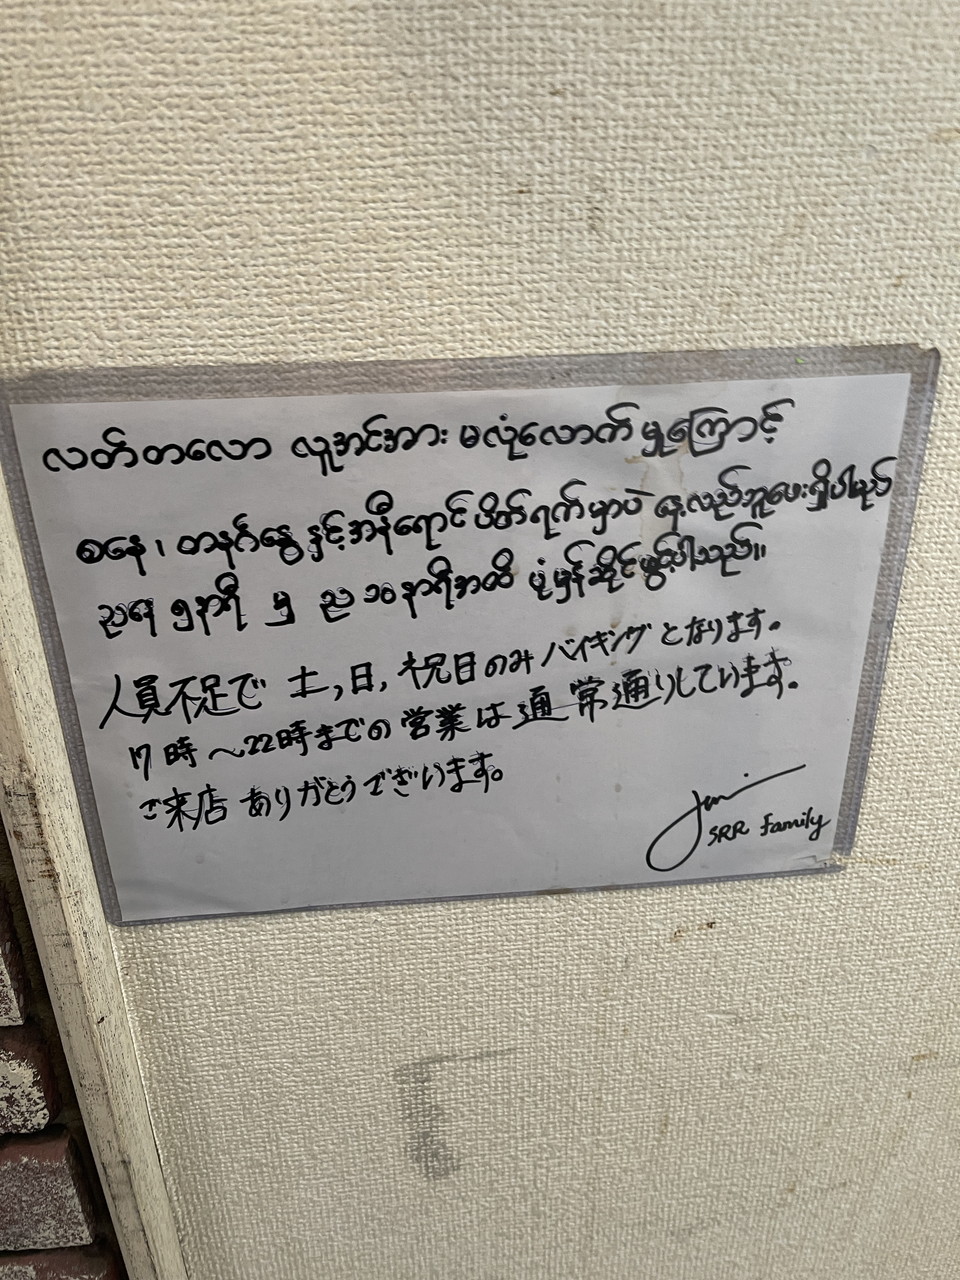 လတ်တလော လူအင်အား မလုံလောက်မှုကြောင့်
စနေ၊ တနင်္ဂနွေ နှင့် အနီရောင်ပိတ်ရက်မှာပဲ နေ့လည်ဘူဖေးရှိပါမည်
ညနေ ၅နာရီ မှ ည ၁၀နာရီအထိ ပုံမှန်ဆိုင်ဖွင့်ပါသည်။
人員不足で 土,日,祝日のみ バイキングとなります。
17時〜22時までの営業は通常通りしています。
ご来店ありがとうございます。
SRR Family